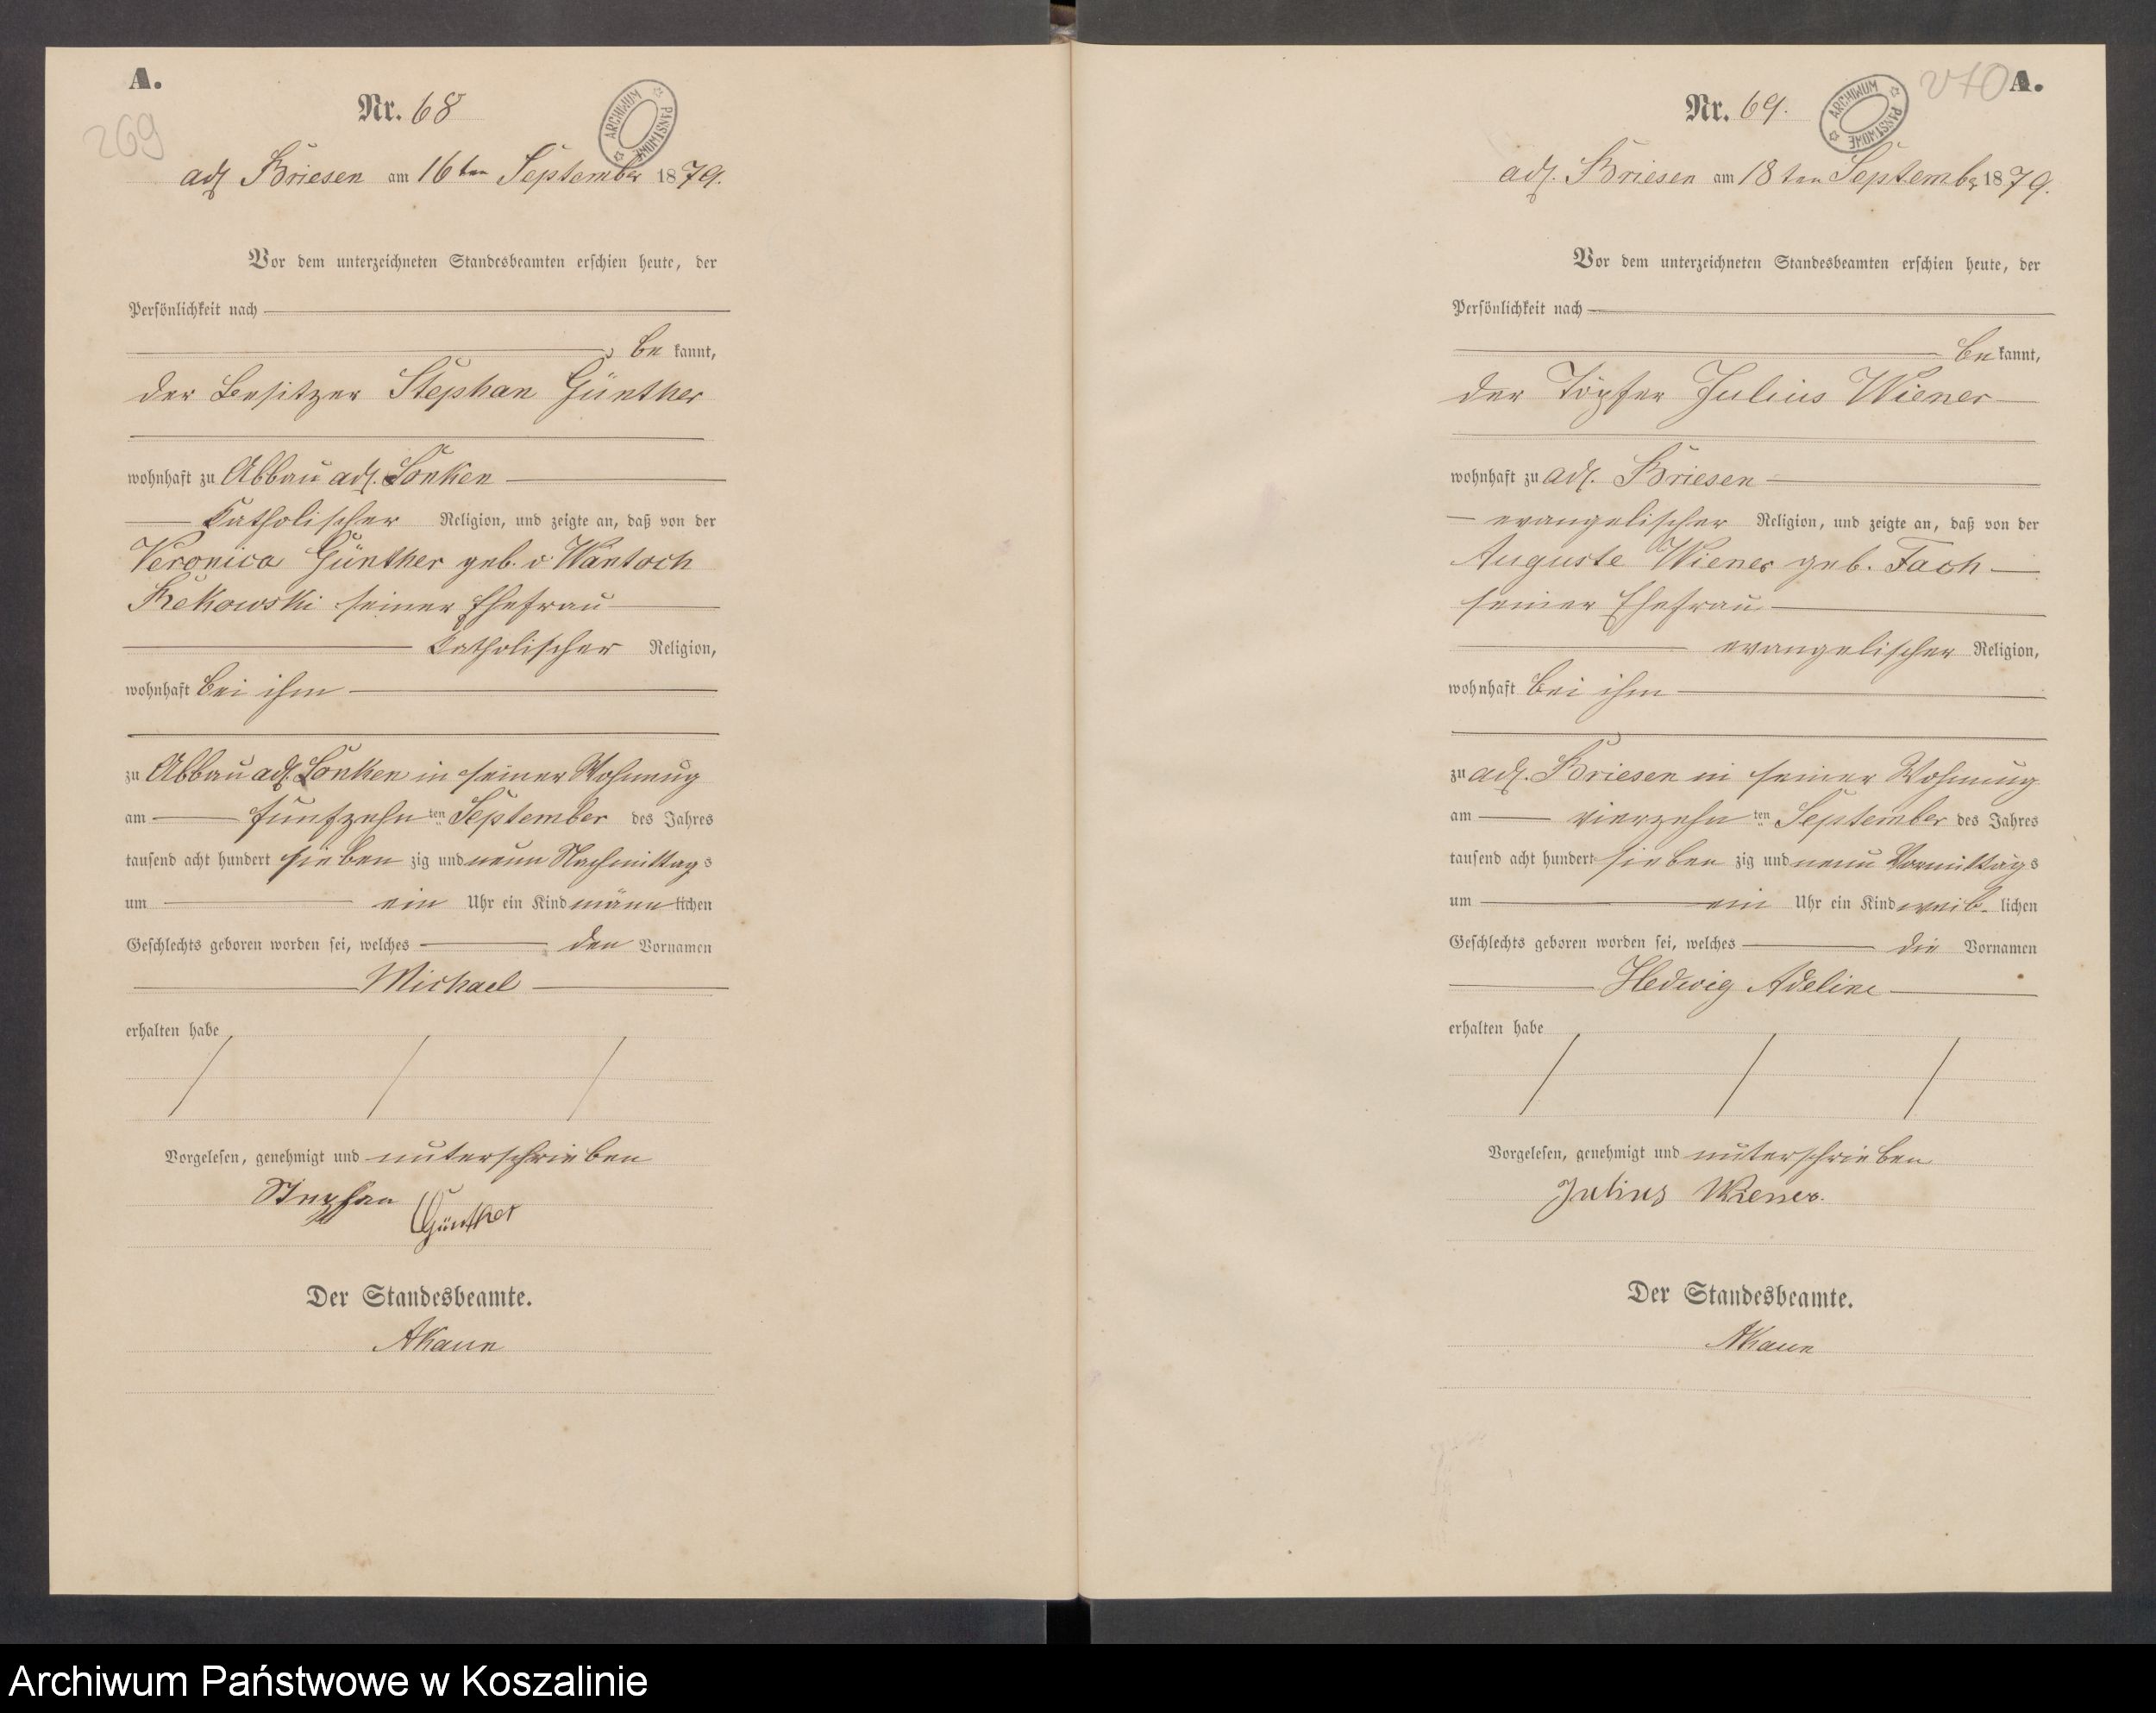 A.
269
Nr. 68
ARCHIWUM PAŃSTWOWE
adl Briesen am 16ten September 1879.
Vor dem unterzeichneten Standesbeamten erschien heute, der
Persönlichkeit nach
be kannt,
der Besitzer Stephan Günther
wohnhaft zu Abbau adl. Lonken
katholischer Religion, und zeigte an, daß von der
Veronica Günther geb. v. Wantoch
Rekowski seiner Ehefrau
katholischer Religion,
wohnhaft bei ihm
zu Abbau adl. Lonken in seiner Wohnung
am fünfzehn ten September des Jahres
tausend acht hundert sieben zig und neun Nachmittags
um ein Uhr ein Kind männlichen
Geschlechts geboren worden sei, welches den Vornamen
Michael
erhalten habe
Vorgelesen, genehmigt und unterschrieben
Stephan Günther
Der Standesbeamte.
270 A.
Nr. 69.
ARCHIWUM PAŃSTWOWE
adl. Briesen am 18ten September 1879.
Vor dem unterzeichneten Standesbeamten erschien heute, der
Persönlichkeit nach
be kannt,
der Töpfer Julius Wiener
wohnhaft zu adl. Briesen
evangelischer Religion, und zeigte an, daß von der
Auguste Wiener geb. Fach
seiner Ehefrau
evangelischer Religion,
wohnhaft bei ihm
zu adl. Briesen in seiner Wohnung
am vierzehn ten September des Jahres
tausend acht hundert sieben zig und neun Vormittags
um ein Uhr ein Kind weib lichen
Geschlechts geboren worden sei, welches die Vornamen
Hedwig Adeline
erhalten habe
Vorgelesen, genehmigt und unterschrieben
Julius Wiener.
Der Standesbeamte.
Archiwum Państwowe w Koszalinie